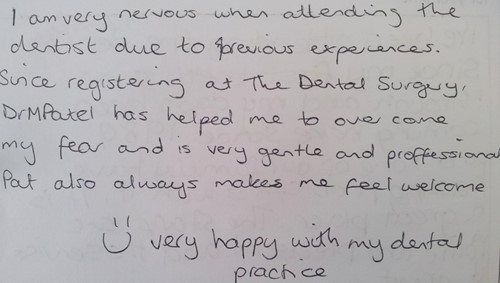 I am very nervous when attending the
dentist due to previous experiences.
Since registering at The Dental Surgery,
DrMPatel has helped me to over come
my fear and is very gentle and proffessional
Pat also always makes me feel welcome
very happy with my dental
practice